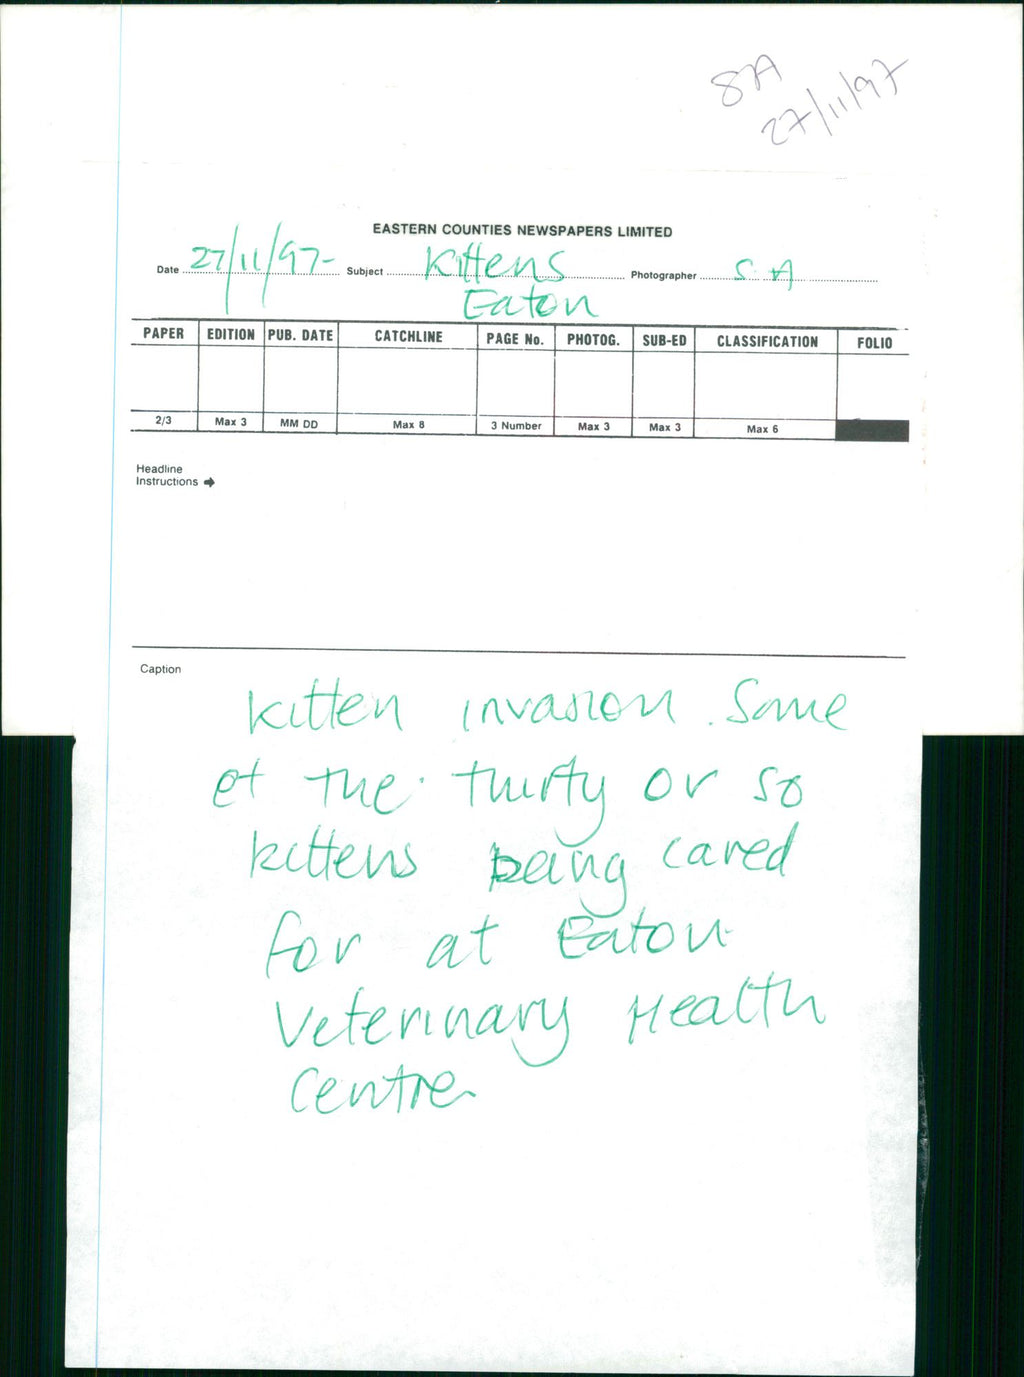 87A
27/11/97
EASTERN COUNTIES NEWSPAPERS LIMITED
Date 27/11/97- Subject Kittens Photographer S.A
Eaton
PAPER EDITION PUB. DATE CATCHLINE PAGE No. PHOTOG. SUB-ED CLASSIFICATION FOLIO
2/3 Max 3 MM DD Max 8 3 Number Max 3 Max 3 Max 6
Headline
Instructions
Caption
Kitten invasion. Some
of the thirty or so
kittens being cared
for at Eaton
Veterinary Health
Centre